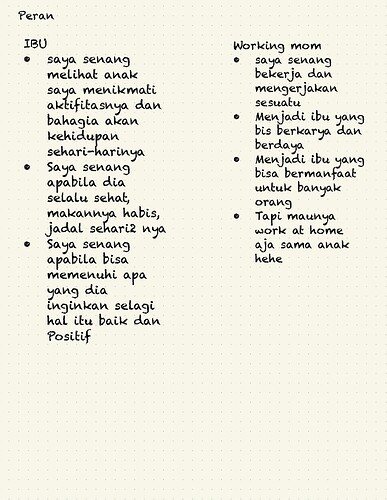 Peran
IBU
• saya senang
melihat anak
saya menikmati
aktifitasnya dan
bahagia akan
kehidupan
sehari-harinya
• Saya senang
apabila dia
selalu sehat,
makannya habis,
jadal sehari2 nya
• Saya senang
apabila bisa
memenuhi apa
yang dia
inginkan selagi
hal itu baik dan
Positif
Working mom
• saya senang
bekerja dan
mengerjakan
sesuatu
• Menjadi ibu yang
bis berkarya dan
berdaya
• Menjadi ibu yang
bisa bermanfaat
untuk banyak
orang
• Tapi maunya
work at home
aja sama anak
hehe